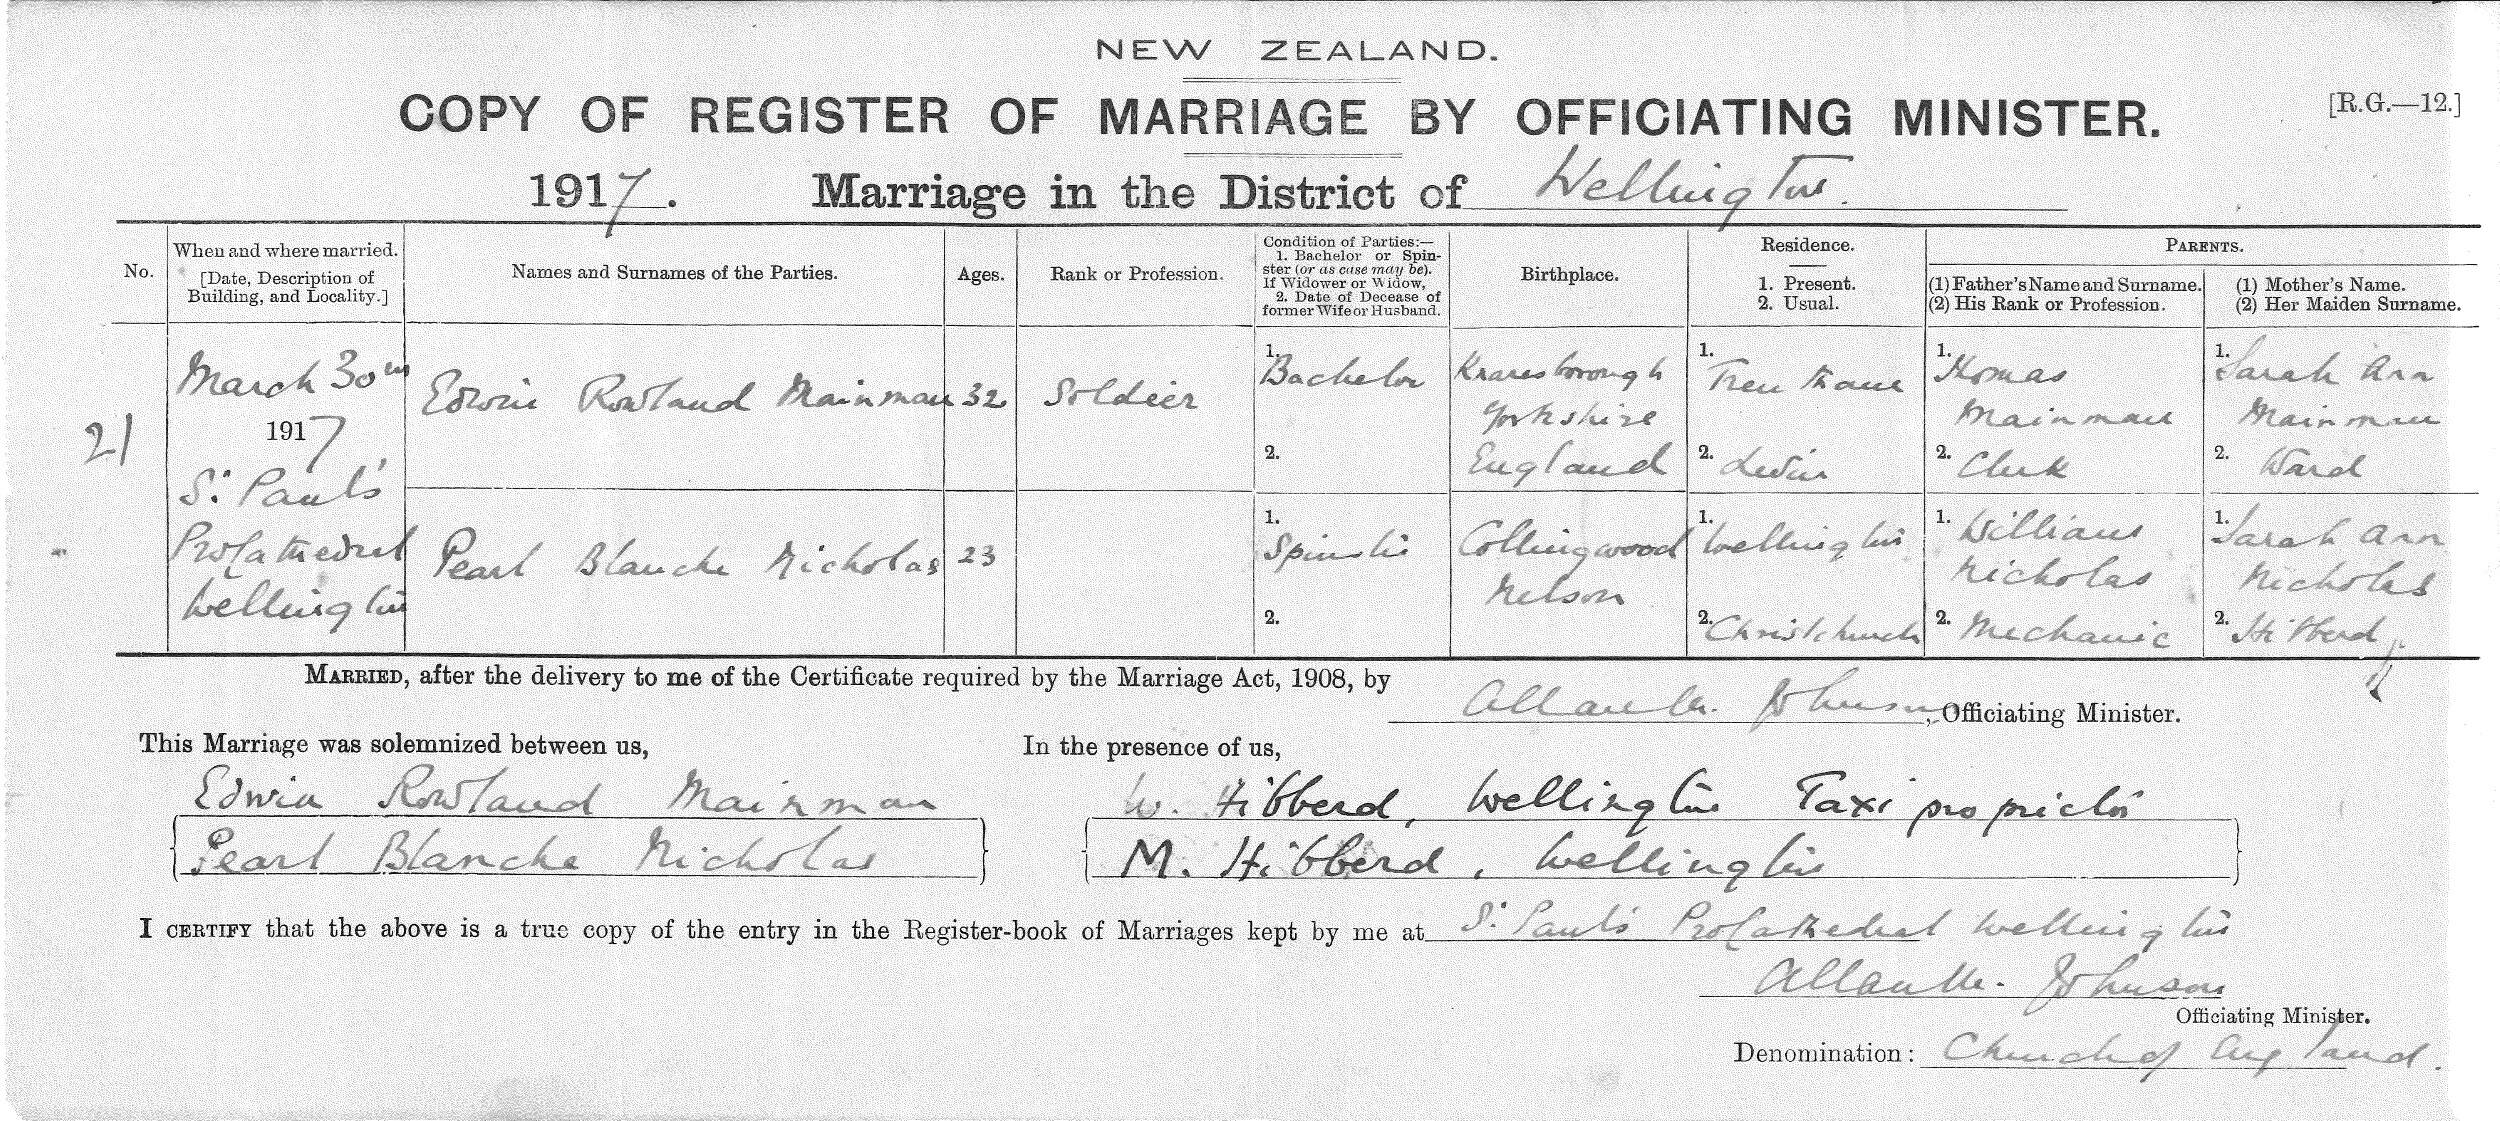 NEW ZEALAND.
COPY OF REGISTER OF MARRIAGE BY OFFICIATING MINISTER.
[R.G.—12.]
1917. Marriage in the District of Wellington.
No.
When and where married.
[Date, Description of
Building, and Locality.]
Names and Surnames of the Parties.
Ages.
Rank or Profession.
Condition of Parties:—
1. Bachelor or Spin-
ster (or as case may be).
If Widower or Widow,
2. Date of Decease of
former Wife or Husband.
Birthplace.
Residence.
1. Present.
2. Usual.
PARENTS.
(1) Father's Name and Surname.
(2) His Rank or Profession.
(1) Mother's Name.
(2) Her Maiden Surname.
21
March 30th
1917
St. Paul's
ProCathedral
Wellington
Edwin Rowland Mainman
32
Soldier
1. Bachelor
2.
Knaresborough
Yorkshire
England
1. Trentham
2. Levin
1. Thomas
Mainman
2. Clerk
1. Sarah Ann
Mainman
2. Ward
Pearl Blanche Nicholas
23
1. Spinster
2.
Collingwood
Nelson
1. Wellington
2. Christchurch
1. William
Nicholas
2. Mechanic
1. Sarah Ann
Nicholas
2. Hibberd
MARRIED, after the delivery to me of the Certificate required by the Marriage Act, 1908, by
Allan M. Johnson, Officiating Minister.
This Marriage was solemnized between us,
Edwin Rowland Mainman
Pearl Blanche Nicholas
In the presence of us,
W. Hibberd, Wellington Taxi proprietor
M. Hibberd, Wellington
I CERTIFY that the above is a true copy of the entry in the Register-book of Marriages kept by me at St. Paul's ProCathedral Wellington
Allan M. Johnson
Officiating Minister.
Denomination: Church of England.